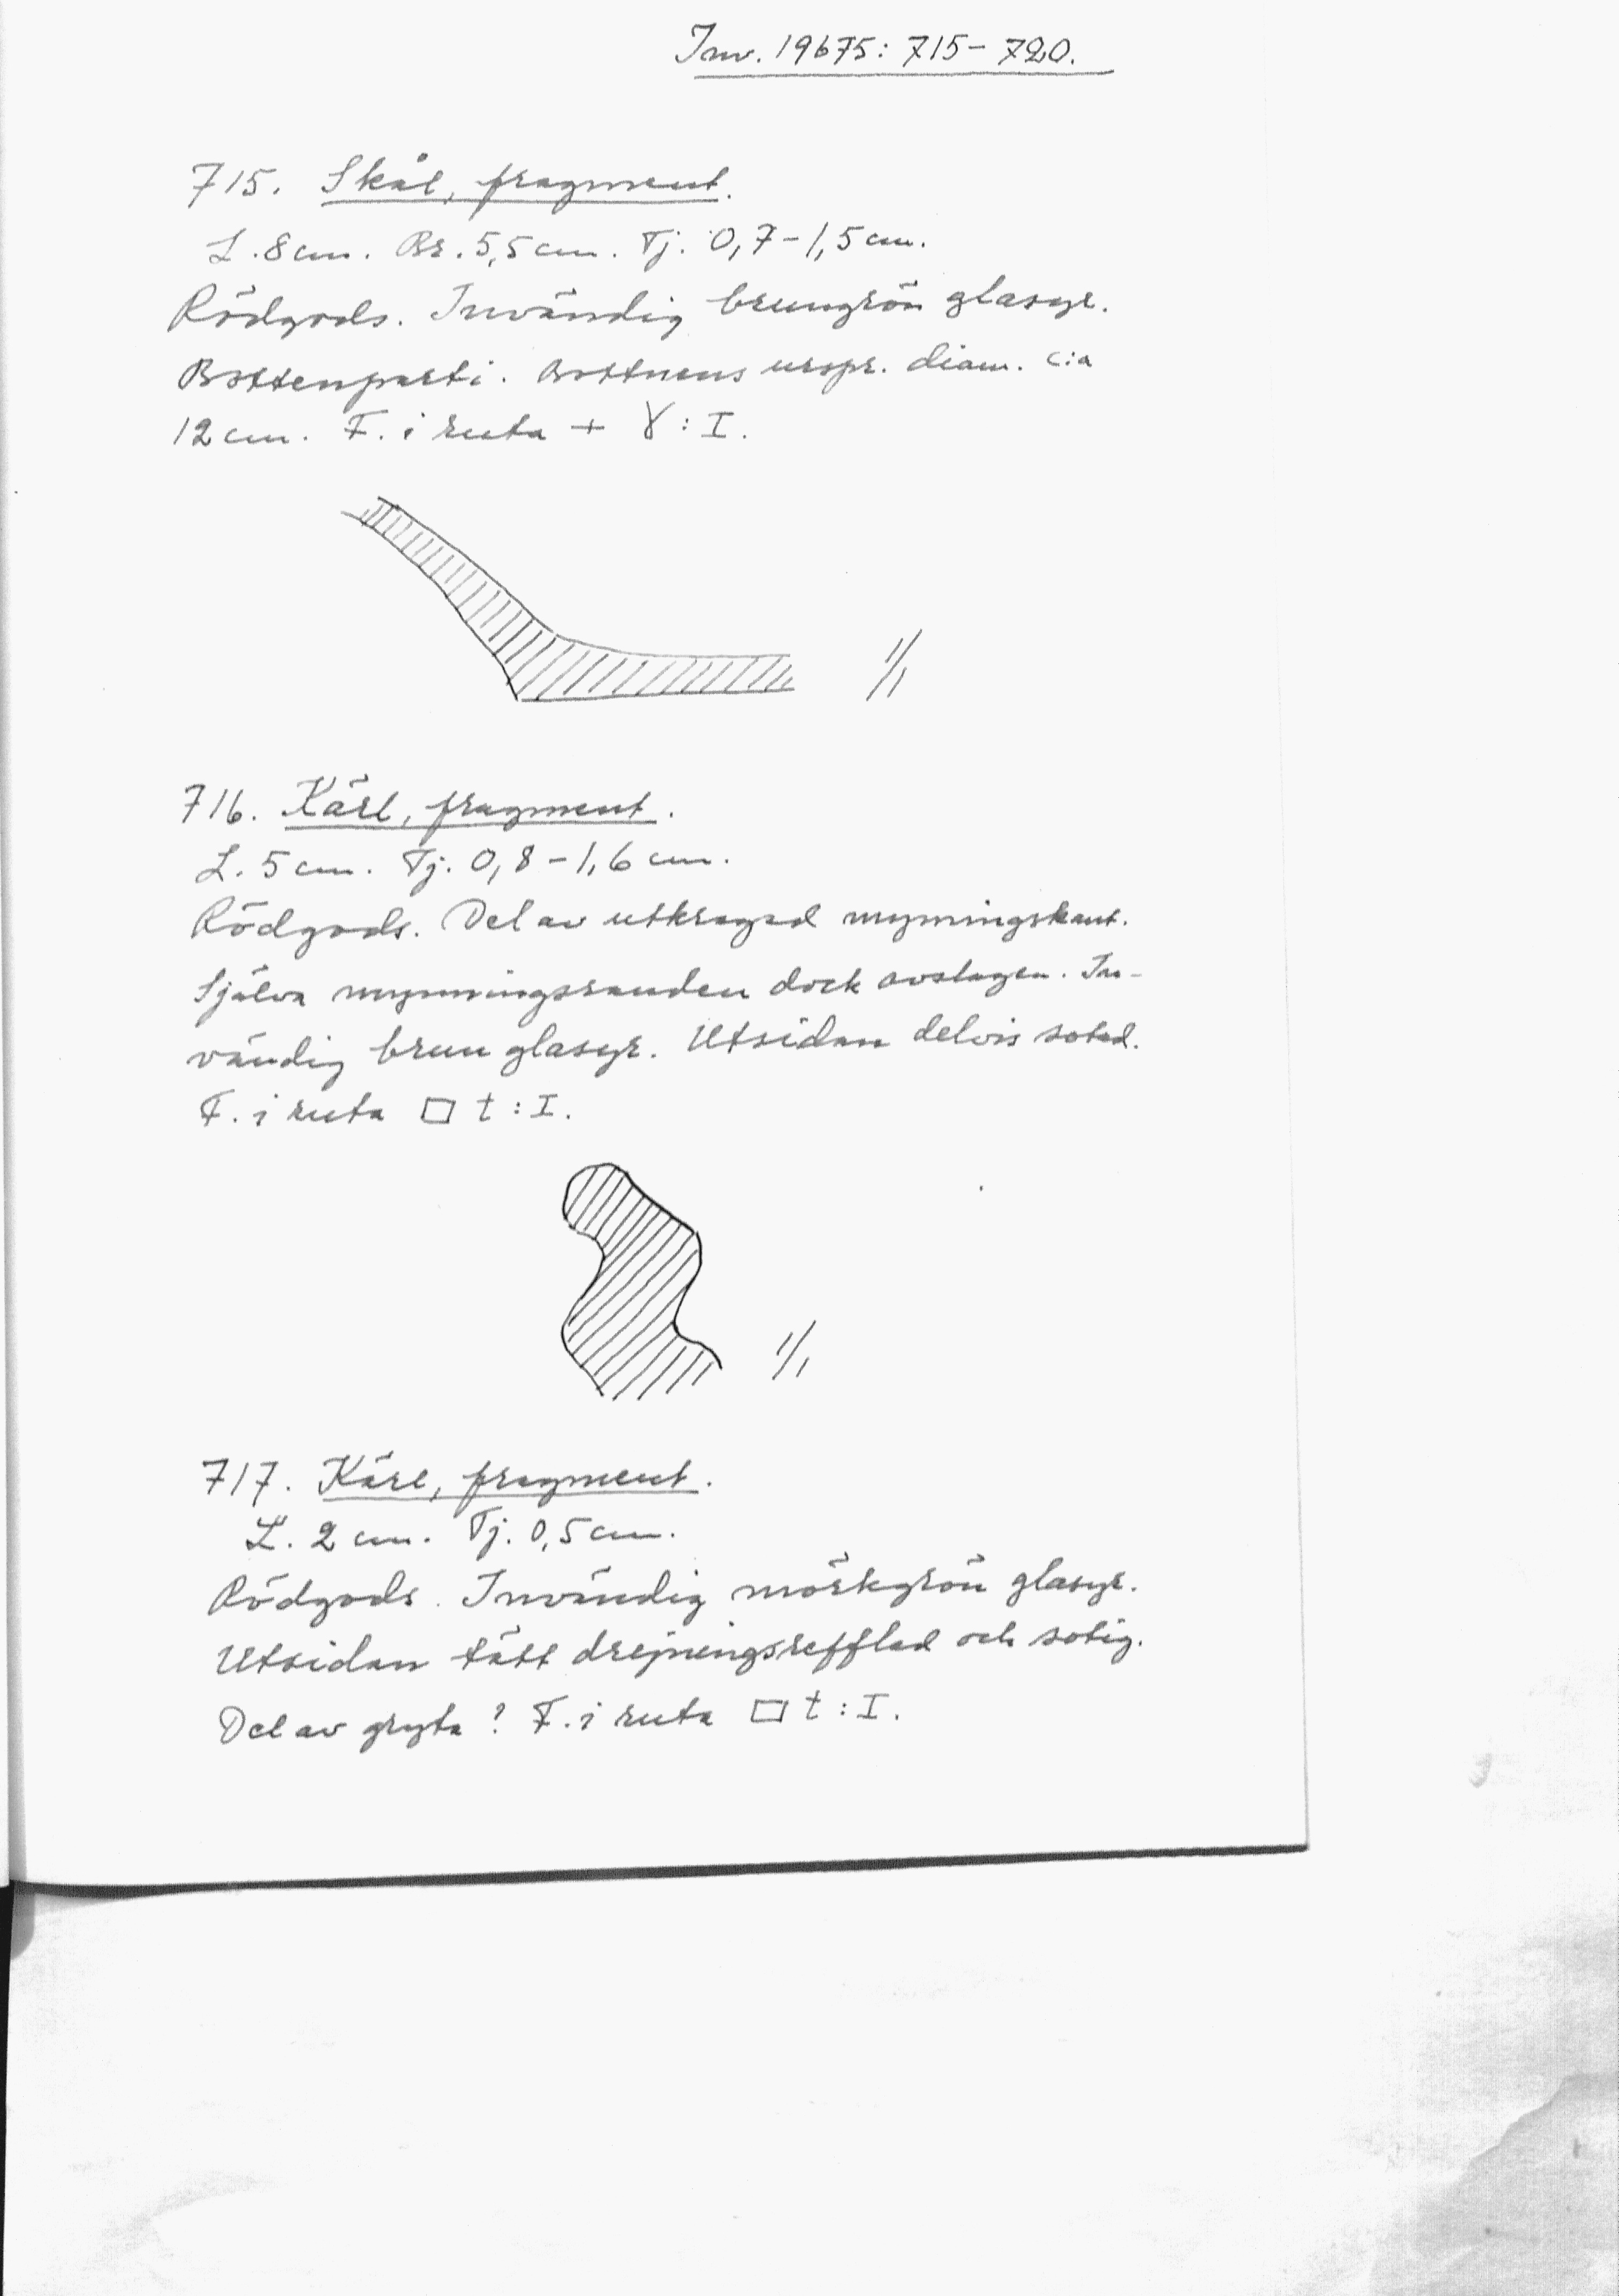 Inv. 19675: 715-720.
715. Skål, fragment.
L. 8 cm. Br. 5,5 cm. Tj. 0,7-1,5 cm.
Rödgods. Invändig brungrön glasyr.
Bottenparti. Bottnens urspr. diam. c:a
12 cm. F. i ruta + γ : I.
1/1
716. Kärl, fragment.
L. 5 cm. Tj. 0,8-1,6 cm.
Rödgods. Del av utkragad mynningskant.
Själva mynningsranden dock avslagen. In-
vändig brun glasyr. Utsidan delvis sotad.
F. i ruta □ t : I.
1/1
717. Kärl, fragment.
L. 2 cm. Tj. 0,5 cm.
Rödgods. Invändig mörkgrön glasyr.
Utsidan tätt drejningsrefflad och sotig.
Del av gryta? F. i ruta □ t : I.